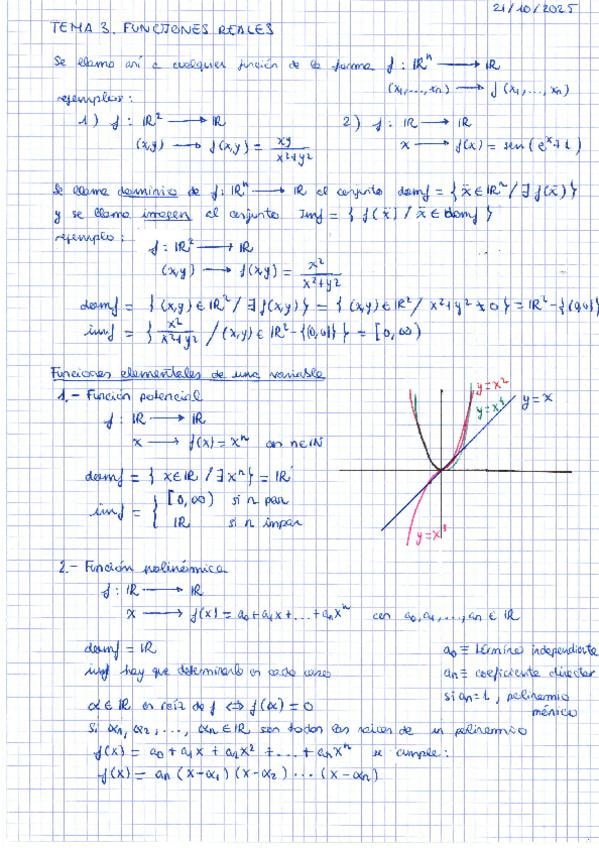 21/10/2025
TEMA 3. FUNCIONES REALES
Se llama así a cualquier función de la forma f: ℝⁿ ⟶ ℝ
(x₁,...,xₙ) ⟶ f(x₁,...,xₙ)
ejemplos:
1) f: ℝ² ⟶ ℝ 2) f: ℝ ⟶ ℝ
(x,y) ⟶ f(x,y) = xy/(x²+y²) x ⟶ f(x) = sen(eˣ+1)
Se llama dominio de f: ℝⁿ ⟶ ℝ al conjunto domf = {x̄ ∈ ℝⁿ / ∃ f(x̄)}
y se llama imagen al conjunto Imf = { f(x̄) / x̄ ∈ domf }
ejemplo:
f: ℝ² ⟶ ℝ
(x,y) ⟶ f(x,y) = x²/(x²+y²)
domf = { (x,y) ∈ ℝ² / ∃ f(x,y) } = { (x,y) ∈ ℝ² / x²+y² ≠ 0 } = ℝ² - {(0,0)}
imf = { x²/(x²+y²) / (x,y) ∈ ℝ² - {(0,0)} } = [0,∞)
Funciones elementales de una variable
1.- Función potencial
f: ℝ ⟶ ℝ
x ⟶ f(x) = xⁿ con n∈ℕ
domf = { x∈ℝ / ∃ xⁿ } = ℝ
imf = { [0,∞) si n par
ℝ si n impar
y=x²
y=x
y=x³
2.- Función polinómica
f: ℝ ⟶ ℝ
x ⟶ f(x) = a₀+a₁x+...+aₙxⁿ con a₀,a₁,...,aₙ ∈ ℝ
domf = ℝ
imf hay que determinarlo en cada caso
a₀ ≡ término independiente
aₙ ≡ coeficiente director
si aₙ=1, polinomio
mónico
α∈ℝ es raíz de f ⟺ f(α)=0
Si α₁, α₂, ..., αₙ ∈ ℝ son todas las raíces de un polinomio
f(x) = a₀ + a₁x + a₂x² + ... + aₙxⁿ se cumple:
f(x) = aₙ (x-α₁) (x-α₂) ... (x-αₙ)